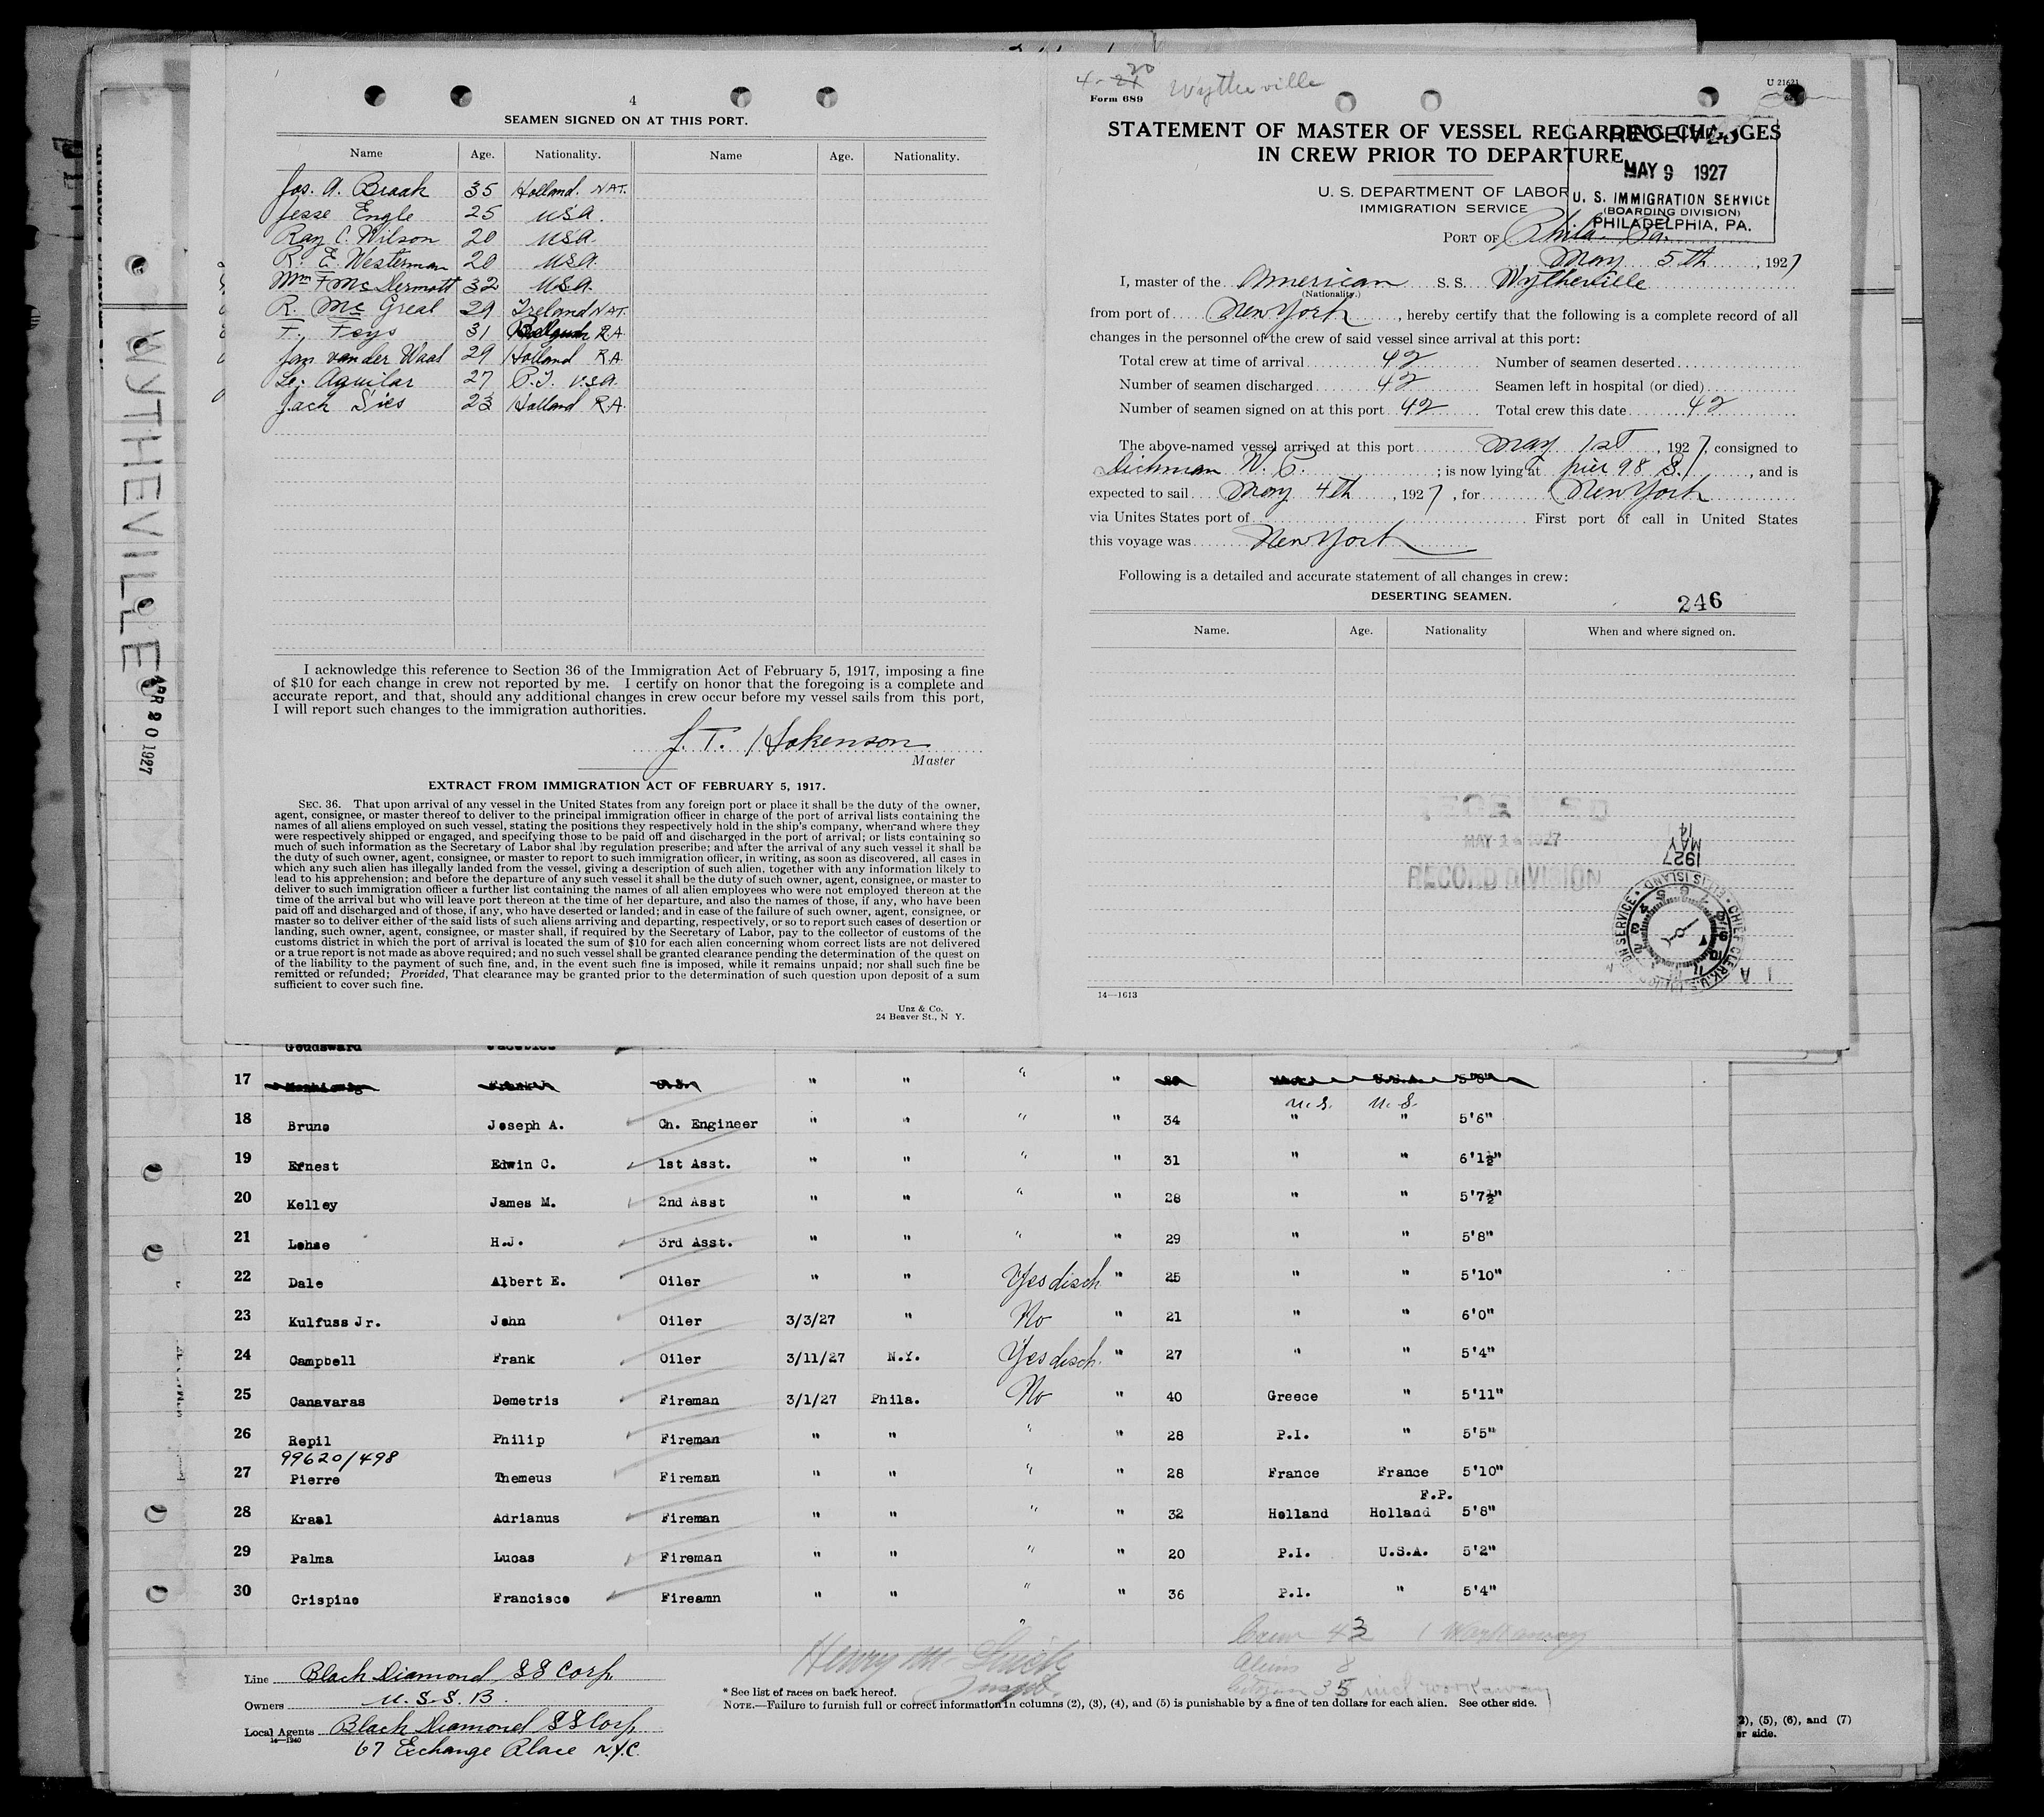 4
SEAMEN SIGNED ON AT THIS PORT.
Name Age. Nationality. Name Age. Nationality.
Jos. A. Braak 35 Holland. NAT.
Jesse Engle 25 USA.
Ray C. Wilson 20 USA.
R. E. Westerman 20 USA.
Wm F McDermott 32 USA.
R. Mc Greal 29 Ireland NAT.
F. Feys 31 RA
Jan van der Waal 29 Holland RA.
Le. Aguilar 27 P.I. U.S.A.
Jack Sies 23 Holland RA.
I acknowledge this reference to Section 36 of the Immigration Act of February 5, 1917, imposing a fine
of $10 for each change in crew not reported by me. I certify on honor that the foregoing is a complete and
accurate report, and that, should any additional changes in crew occur before my vessel sails from this port,
I will report such changes to the immigration authorities.
J. T. Hakenson
Master
EXTRACT FROM IMMIGRATION ACT OF FEBRUARY 5, 1917.
SEC. 36. That upon arrival of any vessel in the United States from any foreign port or place it shall be the duty of the owner,
agent, consignee, or master thereof to deliver to the principal immigration officer in charge of the port of arrival lists containing the
names of all aliens employed on such vessel, stating the positions they respectively hold in the ship's company, when and where they
were respectively shipped or engaged, and specifying those to be paid off and discharged in the port of arrival; or lists containing so
much of such information as the Secretary of Labor shal lby regulation prescribe; and after the arrival of any such vessel it shall be
the duty of such owner, agent, consignee, or master to report to such immigration officer, in writing, as soon as discovered, all cases in
which any such alien has illegally landed from the vessel, giving a description of such alien, together with any information likely to
lead to his apprehension; and before the departure of any such vessel it shall be the duty of such owner, agent, consignee, or master to
deliver to such immigration officer a further list containing the names of all alien employees who were not employed thereon at the
time of the arrival but who will leave port thereon at the time of her departure, and also the names of those, if any, who have been
paid off and discharged and of those, if any, who have deserted or landed; and in case of the failure of such owner, agent, consignee, or
master so to deliver either of the said lists of such aliens arriving and departing, respectively, or so to report such cases of desertion or
landing, such owner, agent, consignee, or master shall, if required by the Secretary of Labor, pay to the collector of customs of the
customs district in which the port of arrival is located the sum of $10 for each alien concerning whom correct lists are not delivered
or a true report is not made as above required; and no such vessel shall be granted clearance pending the determination of the quest on
of the liability to the payment of such fine, and, in the event such fine is imposed, while it remains unpaid; nor shall such fine be
remitted or refunded; Provided, That clearance may be granted prior to the determination of such question upon deposit of a sum
sufficient to cover such fine.
Unz & Co.
24 Beaver St., N Y.
4-21 20 Wytheville
U 21621
Form 689
STATEMENT OF MASTER OF VESSEL REGARDING CHANGES
IN CREW PRIOR TO DEPARTURE
RECEIVED
MAY 9 1927
U. S. IMMIGRATION SERVICE
(BOARDING DIVISION)
PHILADELPHIA, PA.
U. S. DEPARTMENT OF LABOR
IMMIGRATION SERVICE
PORT OF Phila. Pa.
May 5th, 1927
I, master of the American S. S. Wytheville
(Nationality.)
from port of New York, hereby certify that the following is a complete record of all
changes in the personnel of the crew of said vessel since arrival at this port:
Total crew at time of arrival 42 Number of seamen deserted
Number of seamen discharged 42 Seamen left in hospital (or died)
Number of seamen signed on at this port 42 Total crew this date 42
The above-named vessel arrived at this port May 1st, 1927, consigned to
Dichman W. P. ; is now lying at pier 98 S., and is
expected to sail May 4th, 1927, for New York
via Unites States port of First port of call in United States
this voyage was New York
Following is a detailed and accurate statement of all changes in crew:
DESERTING SEAMEN.
246
Name. Age. Nationality When and where signed on.
RECEIVED
MAY 1 1927
RECORD DIVISION
MAY 14
1927
ELLIS ISLAND
CHIEF CLERK
14—1613
WYTHEVILLE
APR 20 1927
Goudsward
17 " " " "
U.S. U.S.
18 Bruno Joseph A. Ch. Engineer " " " " 34 " " 5'6"
19 Ernest Edwin C. 1st Asst. " " " " 31 " " 6'1½"
20 Kelley James M. 2nd Asst " " " " 28 " " 5'7½"
21 Lohse H.J. 3rd Asst. " " " " 29 " " 5'8"
22 Dale Albert E. Oiler " " Yes disch " 25 " " 5'10"
23 Kulfuss Jr. John Oiler 3/3/27 " No " 21 " " 6'0"
24 Campbell Frank Oiler 3/11/27 N.Y. Yes disch. " 27 " " 5'4"
25 Canavaras Demetris Fireman 3/1/27 Phila. No " 40 Greece " 5'11"
26 Repil Philip Fireman " " " " 28 P.I. " 5'5"
99620/498
27 Pierre Themeus Fireman " " " " 28 France France 5'10"
F.P.
28 Kraal Adrianus Fireman " " " " 32 Holland Holland 5'8"
29 Palma Lucas Fireman " " " " 20 P.I. U.S.A. 5'2"
30 Crispino Francisco Fireamn " " " " 36 P.I. " 5'4"
Crew 43 1 Workaway
Aliens 8
Citizen 35 incl workaway
Line Black Diamond SS Corp
Owners U.S.S.B.
Local Agents Black Diamond SS Corp
14—1940
67 Exchange Place N.Y.C.
* See list of races on back hereof.
NOTE.—Failure to furnish full or correct information in columns (2), (3), (4), and (5) is punishable by a fine of ten dollars for each alien. See other side.
2), (5), (6), and (7)
er side.